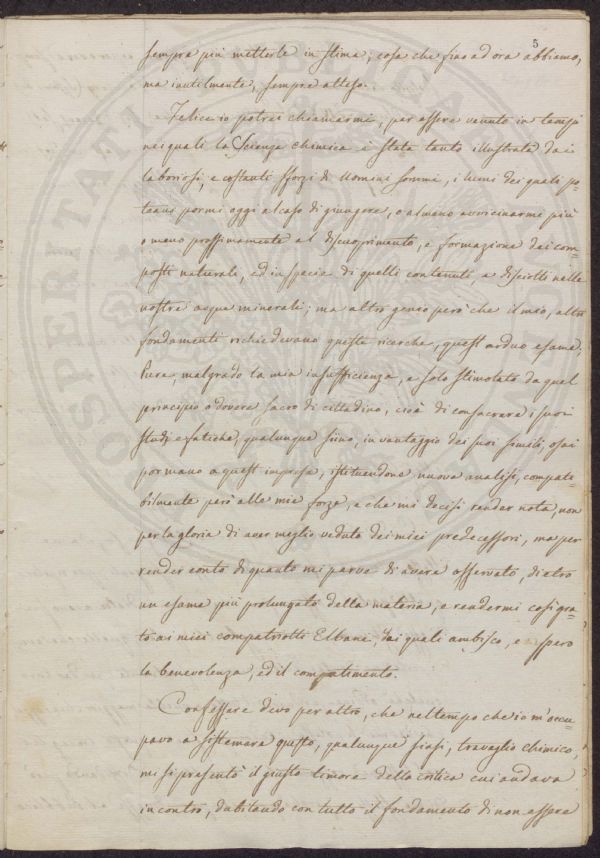 5
sempre più metterle in stima; cosa che fino ad ora abbiamo,
ma inutilmente, sempre atteso.
Felice io potrei chiamarmi, per essere venuto in tempi
nei quali la Scienza chimica è stata tanto illustrata dai
laboriosi, e costanti sforzi di Uomini sommi, i lumi dei quali po=
teano pormi oggi al caso di giungere, o almeno avvicinarmi più
o meno prossimamente al discuoprimento, e formazione dei com=
posti naturali, ed in specie di quelli contenuti, e disciolti nelle
nostre acque minerali; ma altro genio però che il mio, altri
fondamenti richiedevano queste ricerche, quest'arduo esame;
Pure, malgrado la mia insufficienza, e solo stimolato da quel
principio o dovere sacro di cittadino, cioè di consacrare i suoi
studj e fatiche, qualunque siino, in vantaggio dei suoi simili, osai
por mano a quest'impresa, istituendone nuova analisi, compati=
bilmente però alle mie forze, e che mi decisi render nota, non
per la gloria di aver meglio veduto dei miei predecessori, ma per
render conto di quanto mi parve di avere osservato, dietro
un esame più prolungato della materia, e rendermi così gra=
to ai miei compatriotti Elbani, dai quali ambisco, e spero
la benevolenza, ed il compatimento.
Confessare devo per altro, che nel tempo che io m'occu=
pavo a sistemare questo, qualunque siasi, travaglio chimico,
mi si presentò il giusto timore della critica cui andava
incontro, dubitando con tutto il fondamento di non essere
PROSPERITATI PUBLICAE